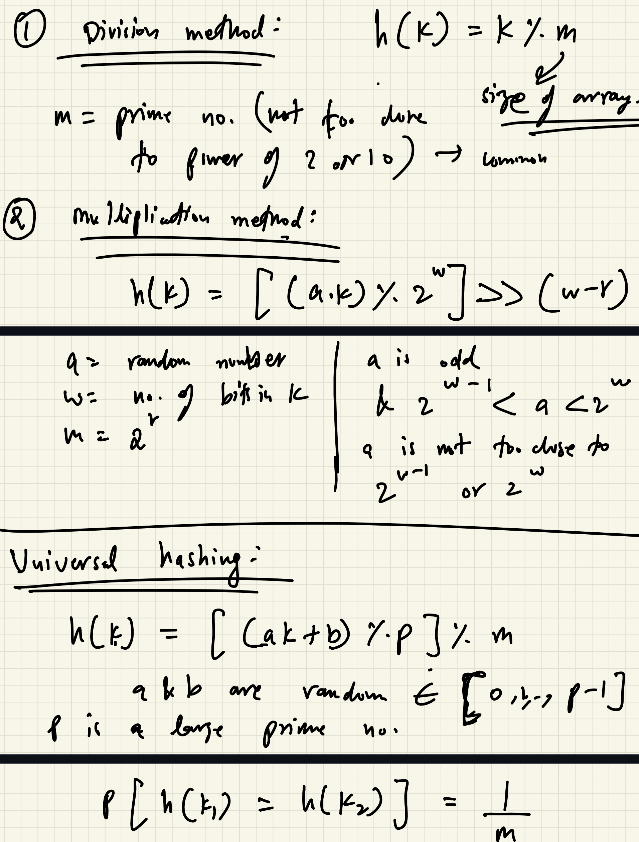 ① Division method: h(k) = k % m
size of array.
m = prime no. (not too close
to power of 2 or 10) → common
② Multiplication method:
h(k) = [(a.k) % 2^w] >> (w-r)
a = random number
w = no. of bits in k
m = 2^r
a is odd
& 2^w-1 < a < 2^w
a is not too close to
2^w-1 or 2^w
Universal hashing:
h(k) = [(ak+b) % p] % m
a & b are random ∈ [0,1,-, p-1]
p is a large prime no.
P[h(k₁) = h(k₂)] = 1/m